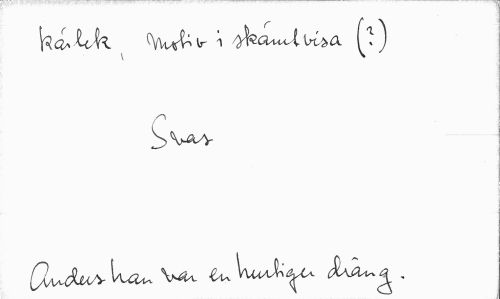 kärlek, Motiv i skämtvisa (?)
Svar
Anders han var en hurtiger dräng.